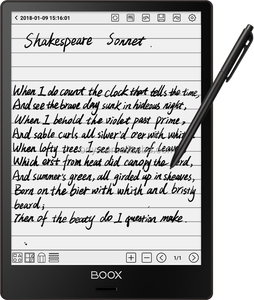 < 2018-01-09 15:16:01
Shakespeare Sonnet.
When I do count the clock that tells the time,
And see the brave day sunk in hideous night,
When I behold the violet past prime,
And sable curls all silver'd o'er with whit
When lofty trees I see barren of leav
Which erst from head did canopy the herd,
And summer's green, all girded up in sheaves,
Born on the bier with whith and bristly
beard;
Then of the beaty do I question make.
1/1
BOOX